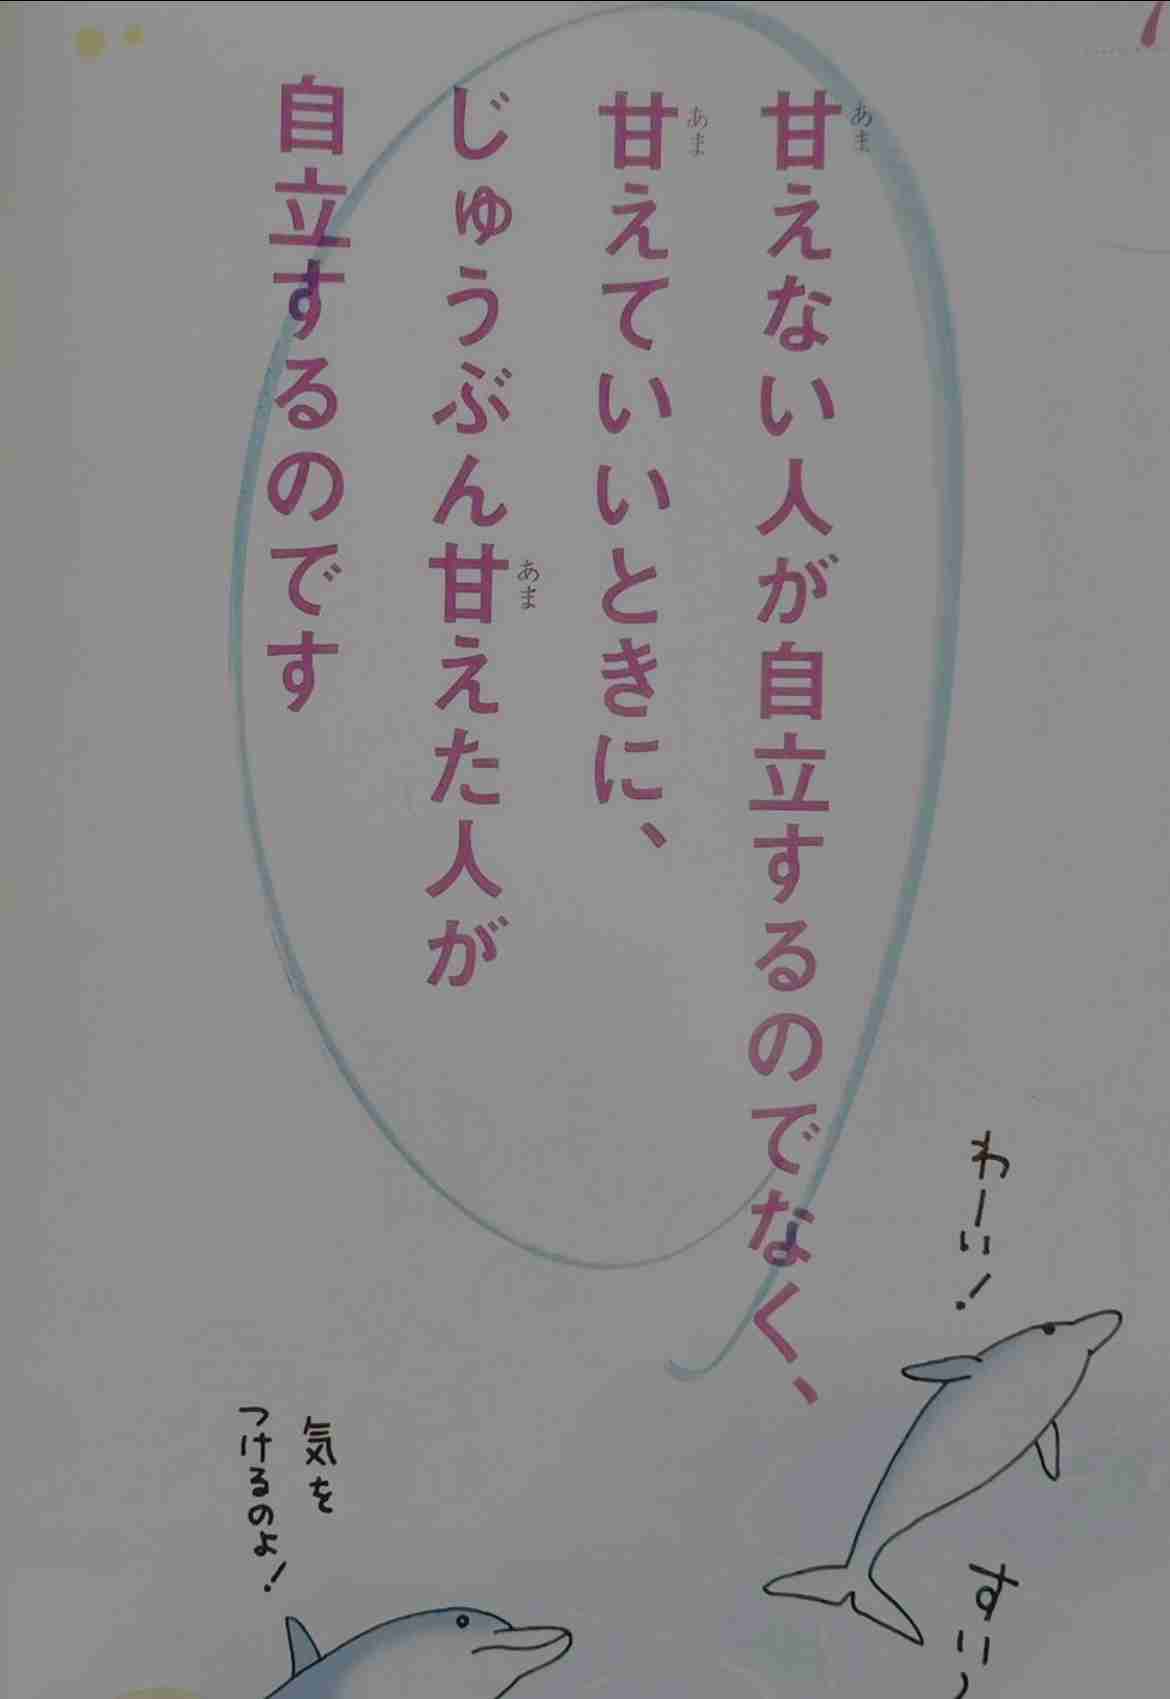 甘えない人が自立するのでなく、
甘えていいときに、
じゅうぶん甘えた人が
自立するのです
あま
あま
あま
わーい!
すいー
気を
つけるのよ!